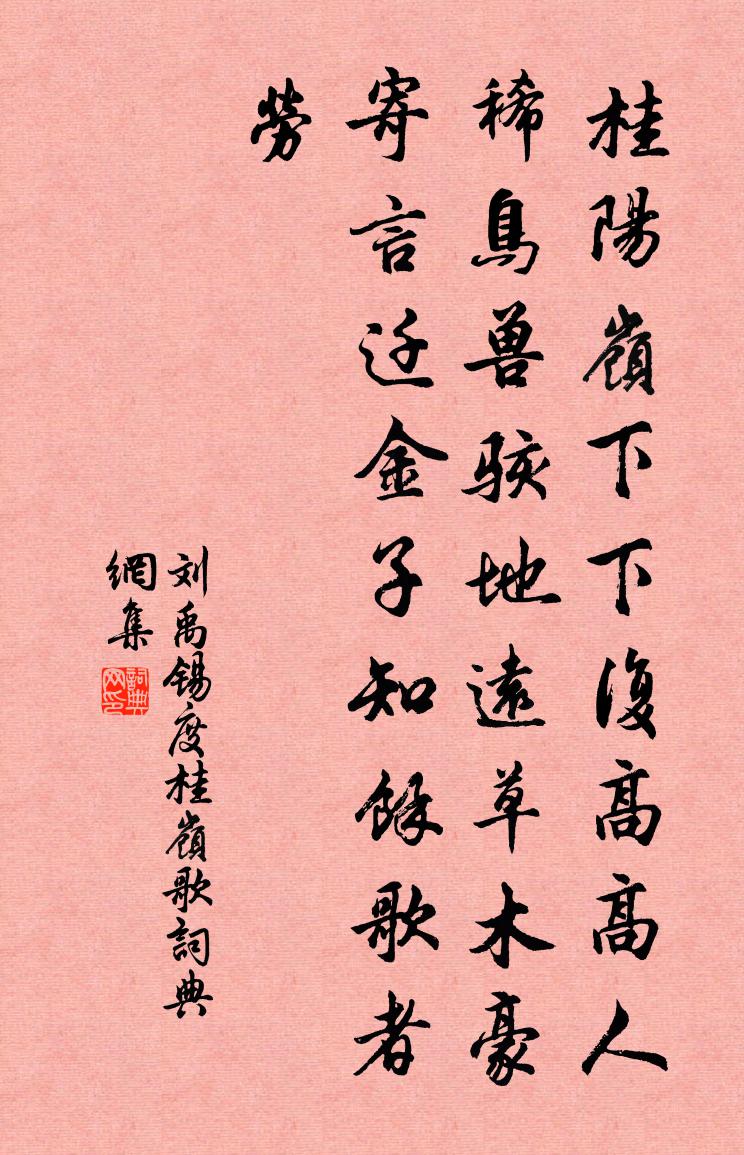 桂陽嶺下下復高高人
稀鳥兽駭地遠草木豪
寄言迁金子知餘歌者
勞
刘禹锡度桂嶺歌詞典
網集
詞典
网印